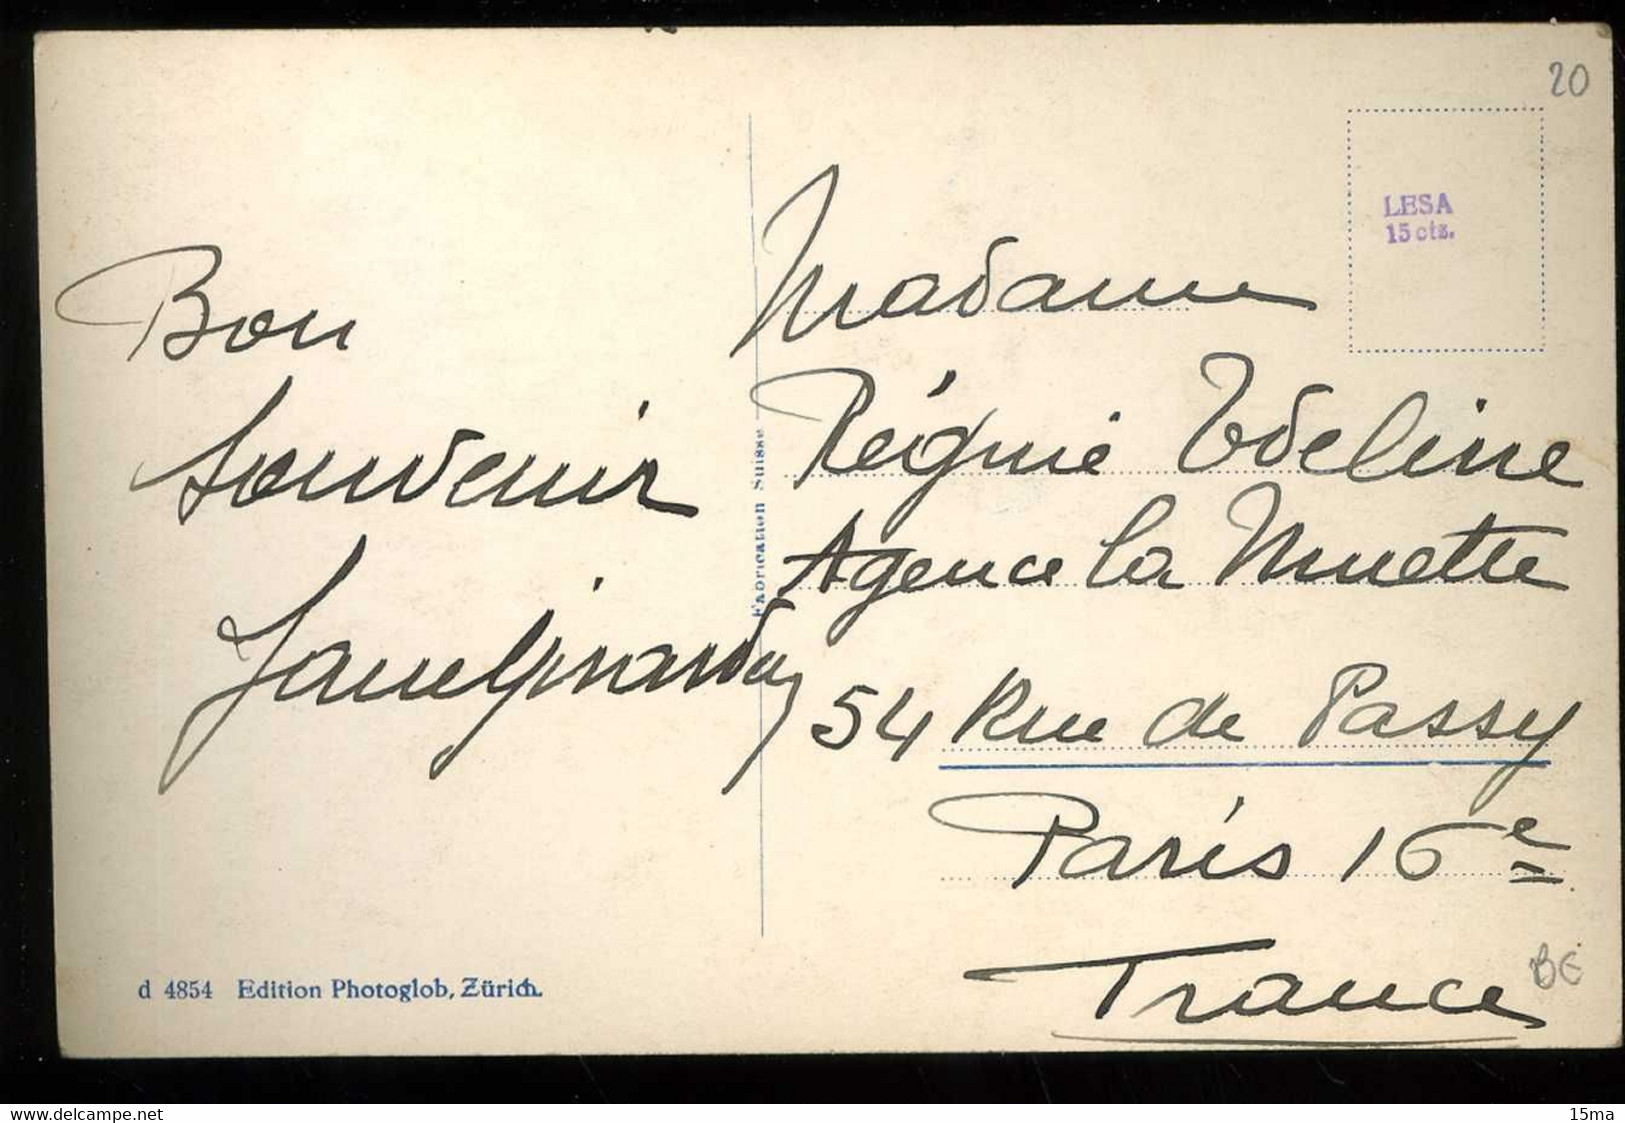 Bon
Souvenir
20
LESA
15 cts.
Madame
Régnié
Agence la Muette
54 Rue de Passy
Paris 16e
France
BE
Fabrication Suisse
d 4854 Edition Photoglob, Zürich.
www.delcampe.net
15ma